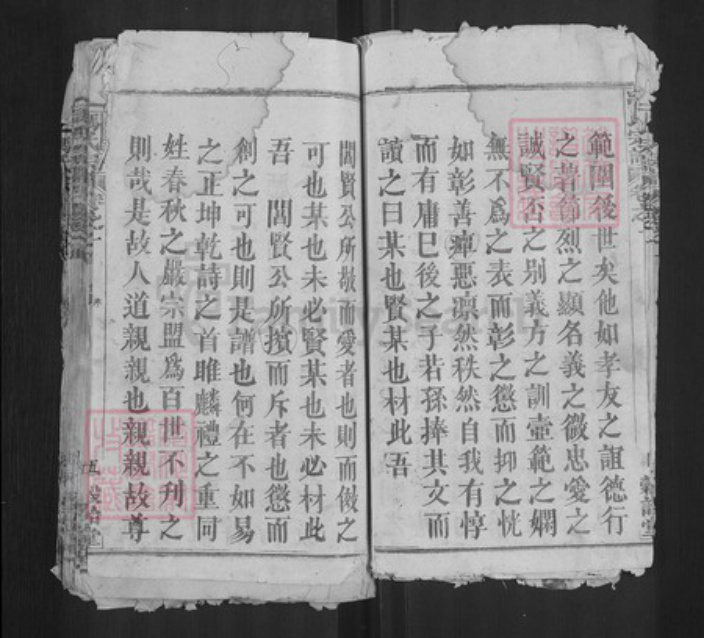 範圍後世矣他如孝友之誼德行
之著節烈之顯名義之微忠愛之
誠賢否之别義方之訓壼範之嫻
無不爲之表而彰之懲而抑之恍
如彰善癉惡凛然秩然自我有惇
而有庸已後之子若孫捧其文而
讀之曰某也賢某也材此吾
閭賢公所敬而愛者也則而傚之
可也某也未必賢某也未必材此
吾 閭賢公所擯而斥者也懲而
創之可也則是譜也何在不如易
之正坤乾詩之首雎麟禮之重同
姓春秋之嚴宗盟爲百世不刋之
則哉是故人道親親也親親故尊